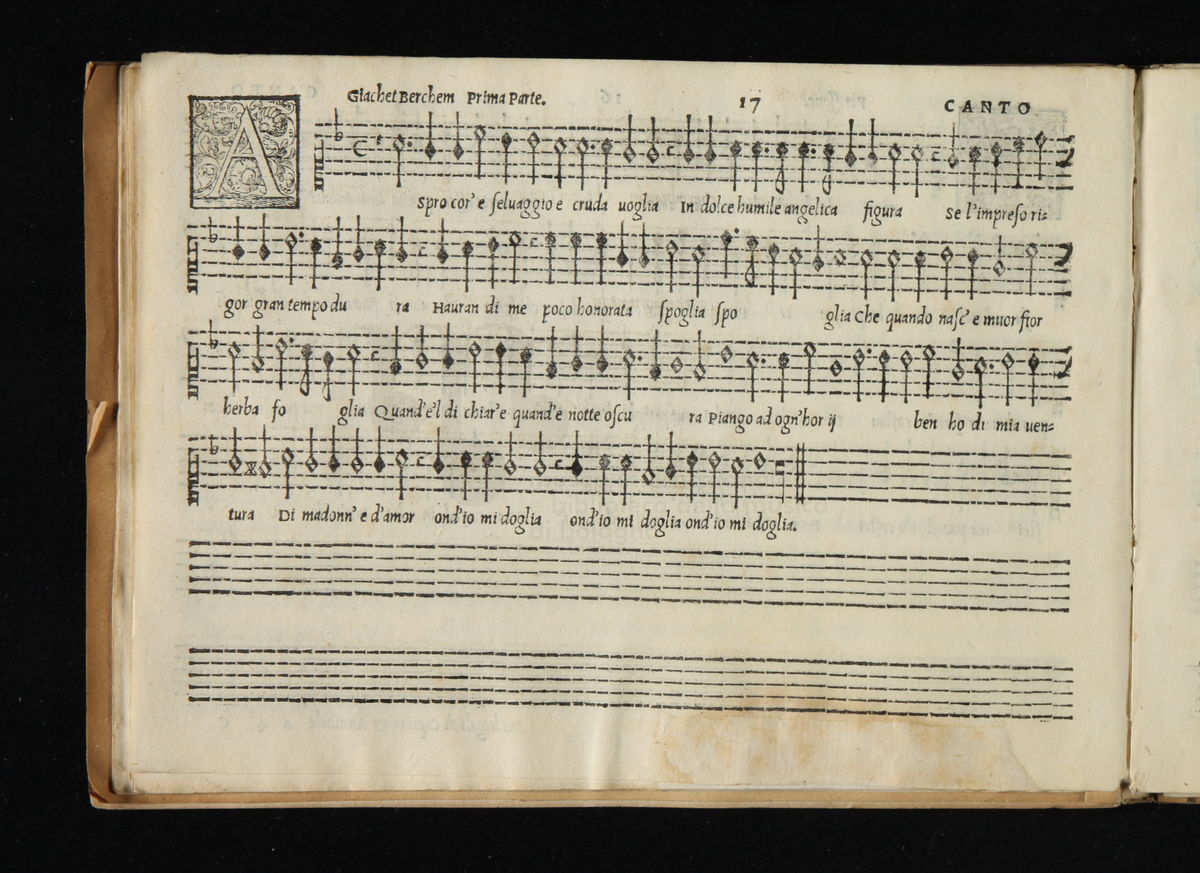 Giachet Berchem Prima Parte. 17 CANTO
A
Spro cor' e ſeluaggio e cruda uoglia In dolce humile angelica figura Se l'impreſo ri=
gor gran tempo du ra Hauran di me poco honorata ſpoglia ſpo glia Che quando naſc' e muor fior
herba fo glia Quand'e'l di chiar'e quand'e notte oſcu ra Piango ad ogn'hor ij ben ho di mia uen=
tura Di madonn' e d'amor ond'io mi doglia ond'io mi doglia ond'io mi doglia.